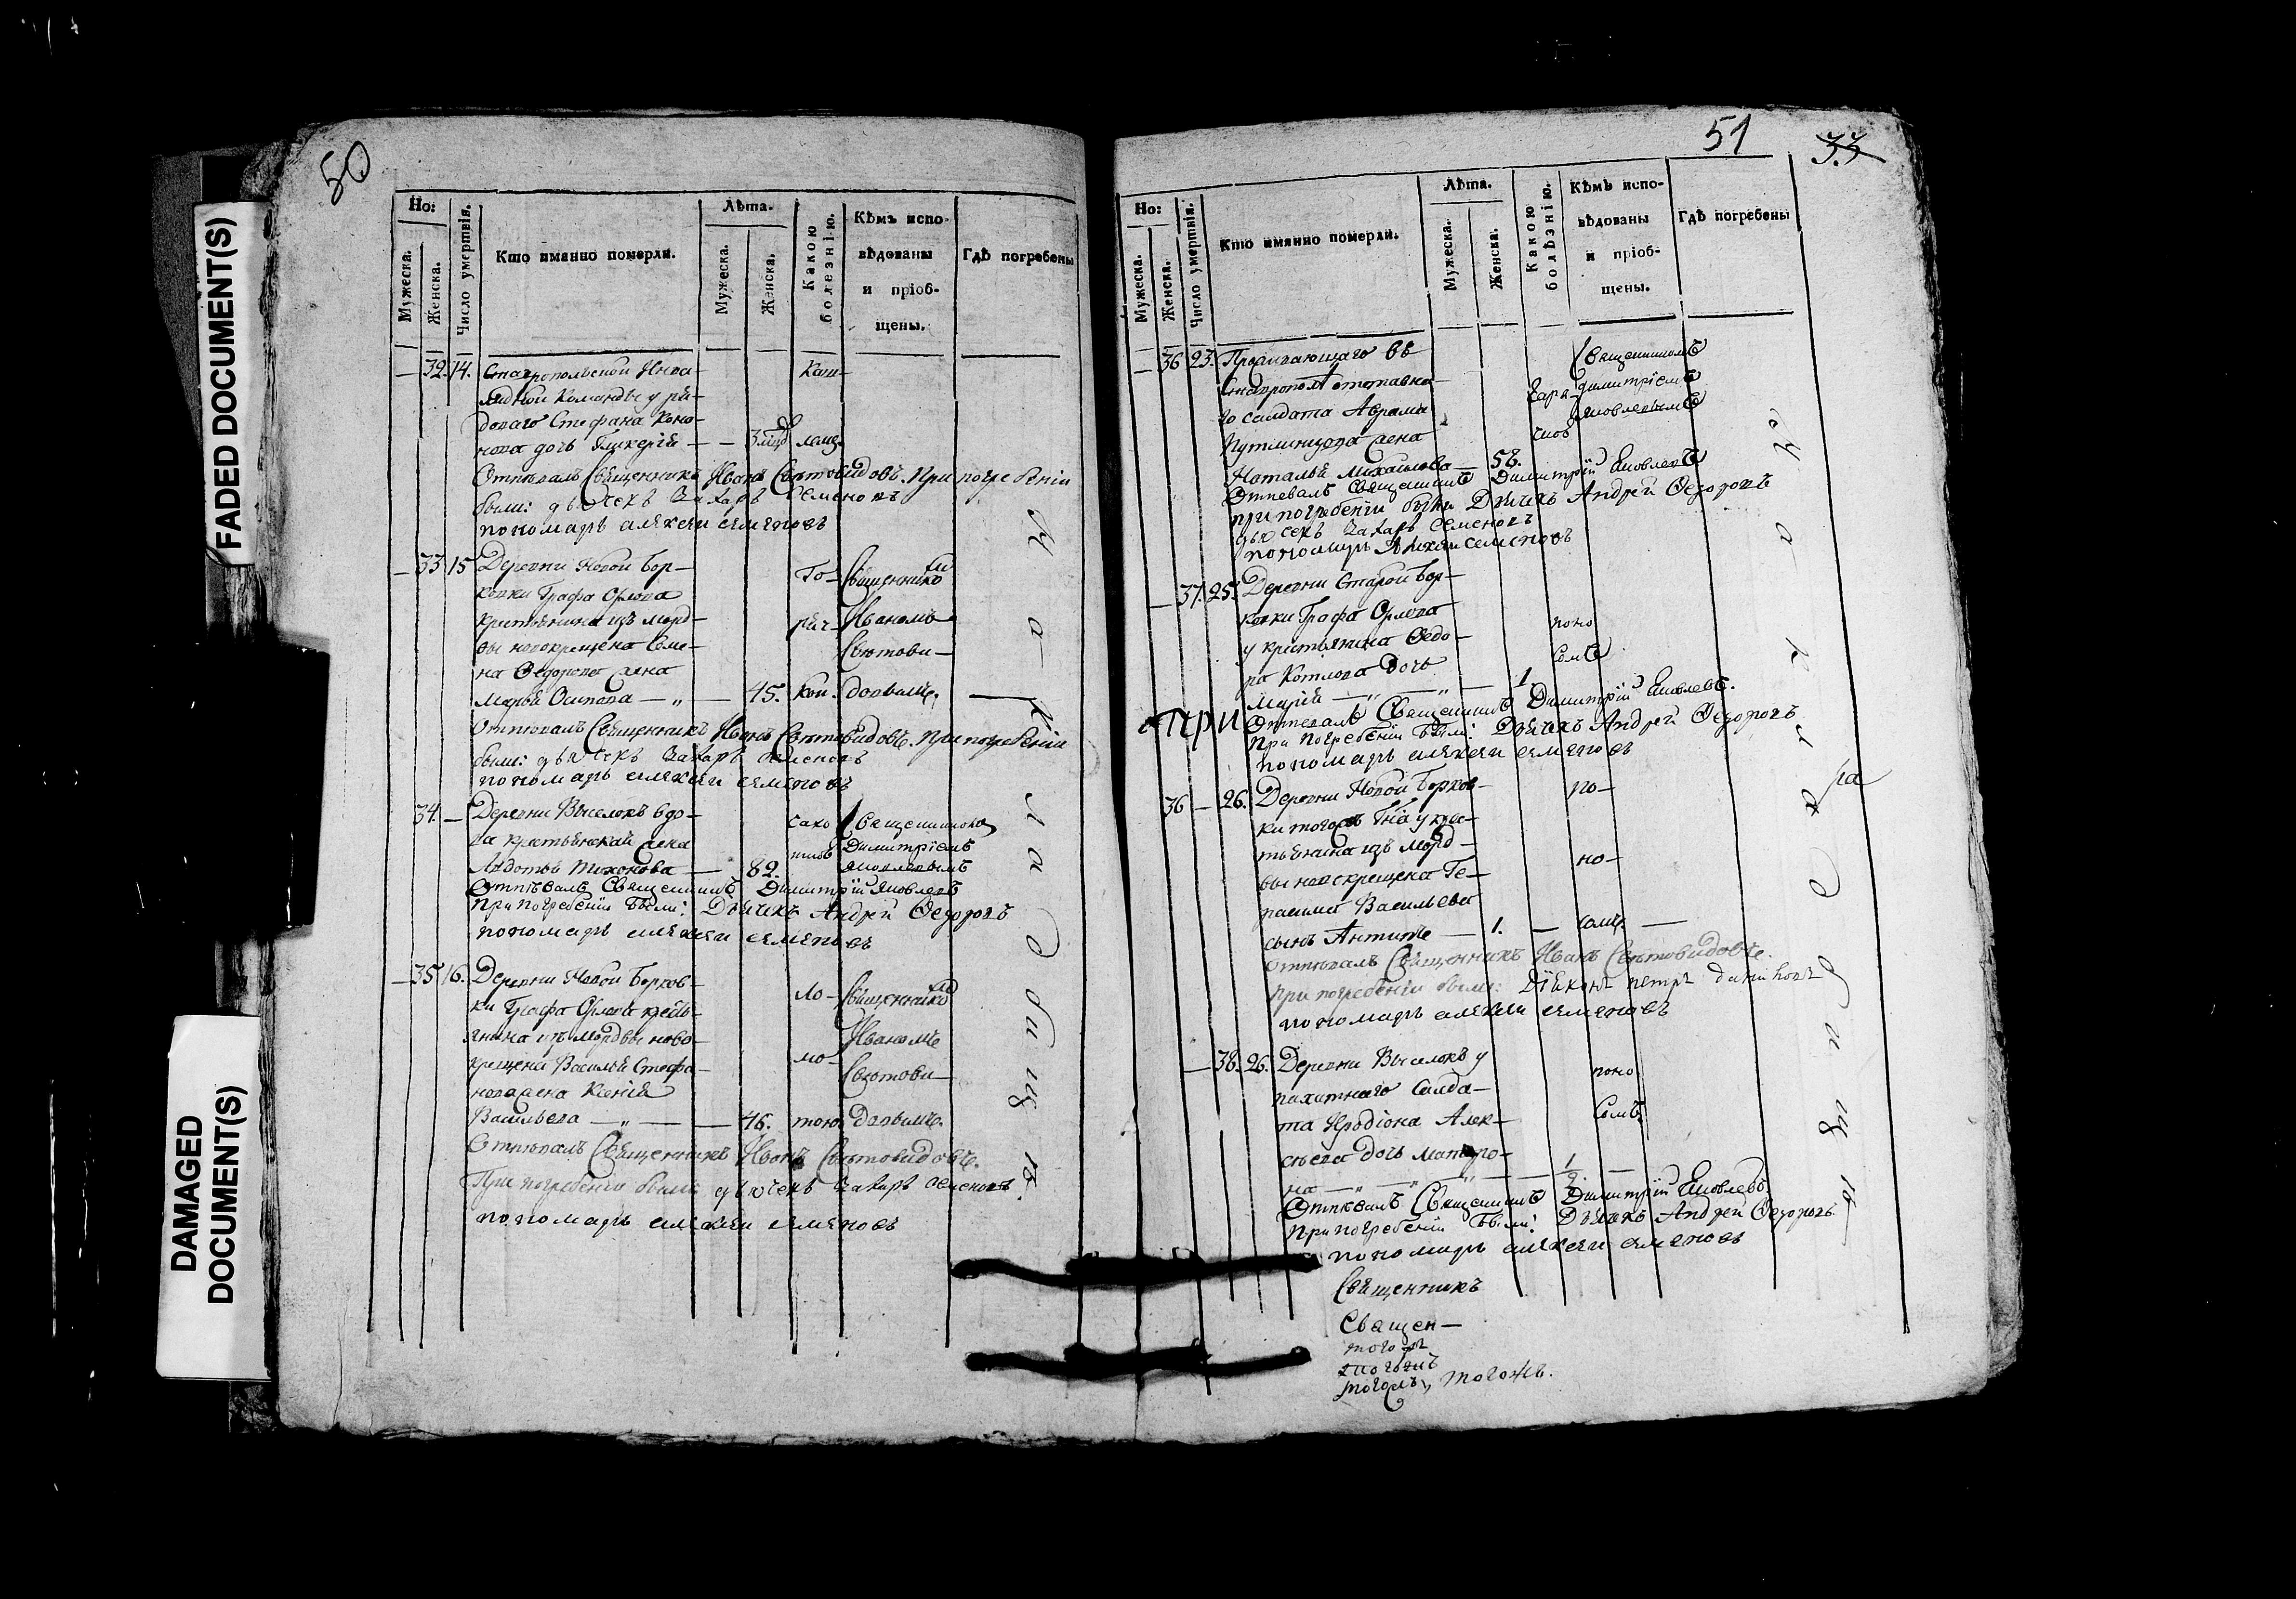 FADED DOCUMENT(S)
DAMAGED
DOCUMENT(S)
50
Но:
Мужеска.
Женска.
Число умертвія.
Кто имянно померли.
Лѣта.
Мужеска.
Женска.
Какою
болезнію.
Кѣмъ испо-
вѣдованы
и пріоб-
щены.
Гдѣ погребены
— 32. 14. Ставропольской Инва-
лидной Команды у ря-
доваго Стефана Коно-
нова дочь Гликерій — —
Каш-
лемъ.
Отпѣвалъ Священникъ Иванъ Свѣтовидовъ. При погребеніи
были: дьячекъ Захаръ Семеновъ
пономарь алексеи семяновъ
— 33 15 Деревни Новой Бор-
ковки Графа Орлова
крестьянина изъ морд-
вы новокрещена Семе-
на Федорова жена
Марья Осипова — „ — 45.
Го-
ряч-
кой.
Священнико
мъ
Иваномъ
Свѣтови-
довымъ.
Отпѣвалъ Священникъ Иванъ Свѣтовидовъ. При погребеніи
были: дьячекъ Захаръ Семеновъ
пономарь алексеи семяновъ
34. — Деревни Выселокъ вдо-
ва крестьянская жена
Авдотья Тихонова — 82.
Священникомъ
Димитріемъ
Яковлевымъ
Отпѣвалъ Священникъ Димитрій Яковлевъ
При погребеніи были: Дьячекъ Андрей Федоровъ
пономарь алексеи семяновъ
— 35 16. Деревни Новой Борков-
ки Графа Орлова кресть-
янина изъ мордвы ново-
крещена Василья Стефа-
нова жена Ксенія
Васильева — „ — — 46.
Ло-
мо-
тою.
Священнико
мъ
Иваномъ
Свѣтови-
довымъ.
Отпѣвалъ Священникъ Иванъ Свѣтовидовъ.
При погребеніи были дьячекъ Захаръ Семеновъ.
пономарь алексеи семяновъ
51
33
Но:
Мужеска.
Женска.
Число умертвія.
Кто имянно померли.
Лѣта.
Мужеска.
Женска.
Какою
болѣзнію.
Кѣмъ испо-
вѣдованы
и пріоб-
щены.
Гдѣ погребены
— 36 23. Проживающаго въ
Ставрополѣ отставна-
го салдата Абрама
жена
Наталья Михайлова — 58.
Священникомъ
Димитріемъ
Яковлевымъ
Отпевалъ Священникъ Димитрій Яковлевъ
при погребеніи были Дьячекъ Андрей Федоровъ
дьячекъ Захаръ Семеновъ
пономарь Алексеи семеновъ
— 37. 25. Деревни Старой Бор-
ковки Графа Орлова
у крестьянина Федо-
ра Котлова дочь
Марій — „ — „ — 1.
поно
сомъ
При
Отпевалъ Священникъ Димитрій Яковлевъ.
При погребеніи были: Дьячекъ Андрей Федоровъ
пономарь алексеи семяновъ
36 — 26. Деревни Новой Борков-
ки тогожъ Гна у крес-
тьянина изъ Морд-
вы новокрещена Ге-
расима Васильева
сынъ Антипъ — 1. —
по-
но-
сомъ. —
Отпѣвалъ Священникъ Иванъ Свѣтовидовъ.
При погребеніи были: Діаконъ петръ
пономарь алексеи семяновъ
— 38. 26. Деревни Выселокъ у
пахатнаго Салда-
та Иродіона Алек-
сѣева дочь Матро-
на — „ — „ — „ — 1/2 —
поно
сомъ.
Отпѣвалъ Священникъ Димитрій Яковлевъ
При погребеніи были: Дьячекъ Андрей Федоровъ.
пономарь алексеи семяновъ
Священникъ
Священ-
тогожъ.